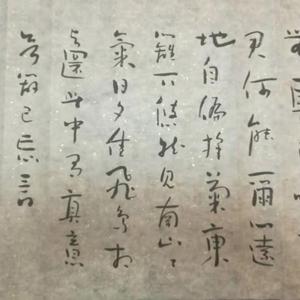 君何能爾心遠
地自偏採菊東
籬下悠然見南山々
氣日夕佳飛鳥相
與還此中有真意
欲辨已忘言